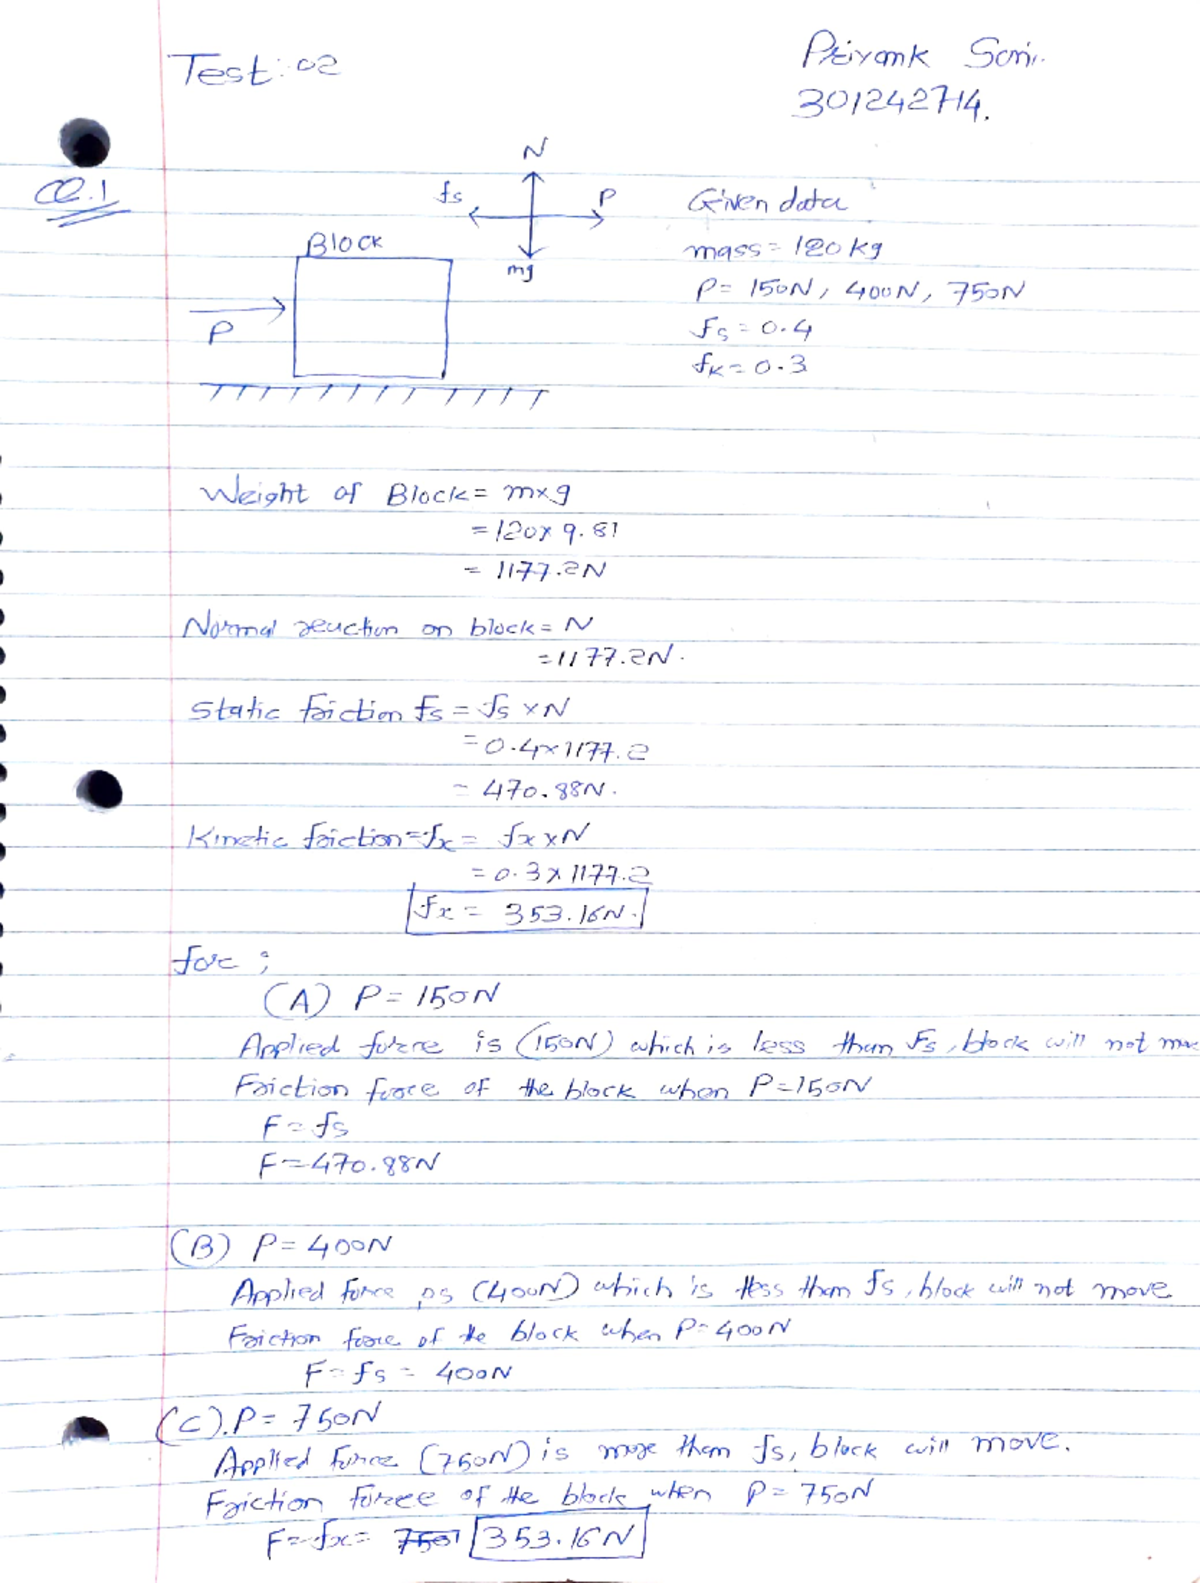 Test: 02
Priyank Soni.
301242714.
Q.1
N
fs
P
mg
Block
P
Given data
mass = 120 kg
P = 150N, 400N, 750N
fs = 0.4
fk = 0.3
Weight of Block = m×g
= 120 × 9.81
= 1177.2N
Normal reaction on block = N
= 1177.2N.
Static friction fs = fs × N
= 0.4 × 1177.2
= 470.88N.
Kinetic friction = fx = fx × N
= 0.3 × 1177.2
fx = 353.16N.
for ;
(A) P = 150N
Applied force is (150N) which is less than Fs, block will not
Friction force of the block when P = 150N
F = fs
F = 470.88N
(B) P = 400N
Applied force is (400N) which is less than fs, block will not move
Friction force of the block when P = 400N
F = fs = 400N
(C). P = 750N
Applied force (750N) is more than fs, block will move.
Friction force of the block when P = 750N
F = fx = 353.16N